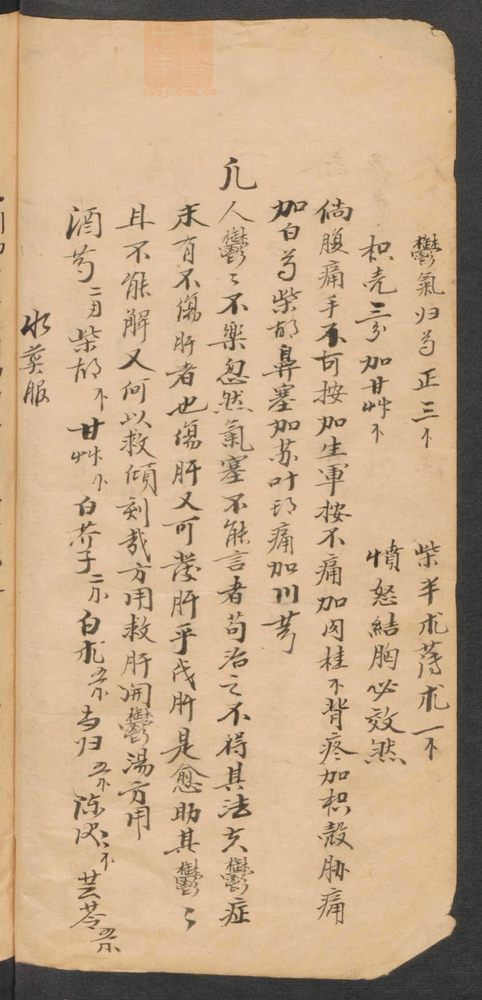 鬱氣归芍正三个 柴半朮薄朮一个
枳壳三分加甘艸个 憤怒結胸必效然
倘腹痛手不可按加生軍按不痛加肉桂个背疼加枳殼胁痛
加白芍柴胡鼻塞加苏叶 痛加川芎
凡人鬱〻不樂忽然氣塞不能言者苟治之不得其法夫鬱症
未有不傷肝者也傷肝又可發肝乎伐肝是愈助其鬱〻
且不能解又何以救傾刻哉方用救肝開鬱湯方用
酒芍二両柴胡个甘艸个白芥子二个白朮五个当归五个陈皮二个茯苓五个
水煎服